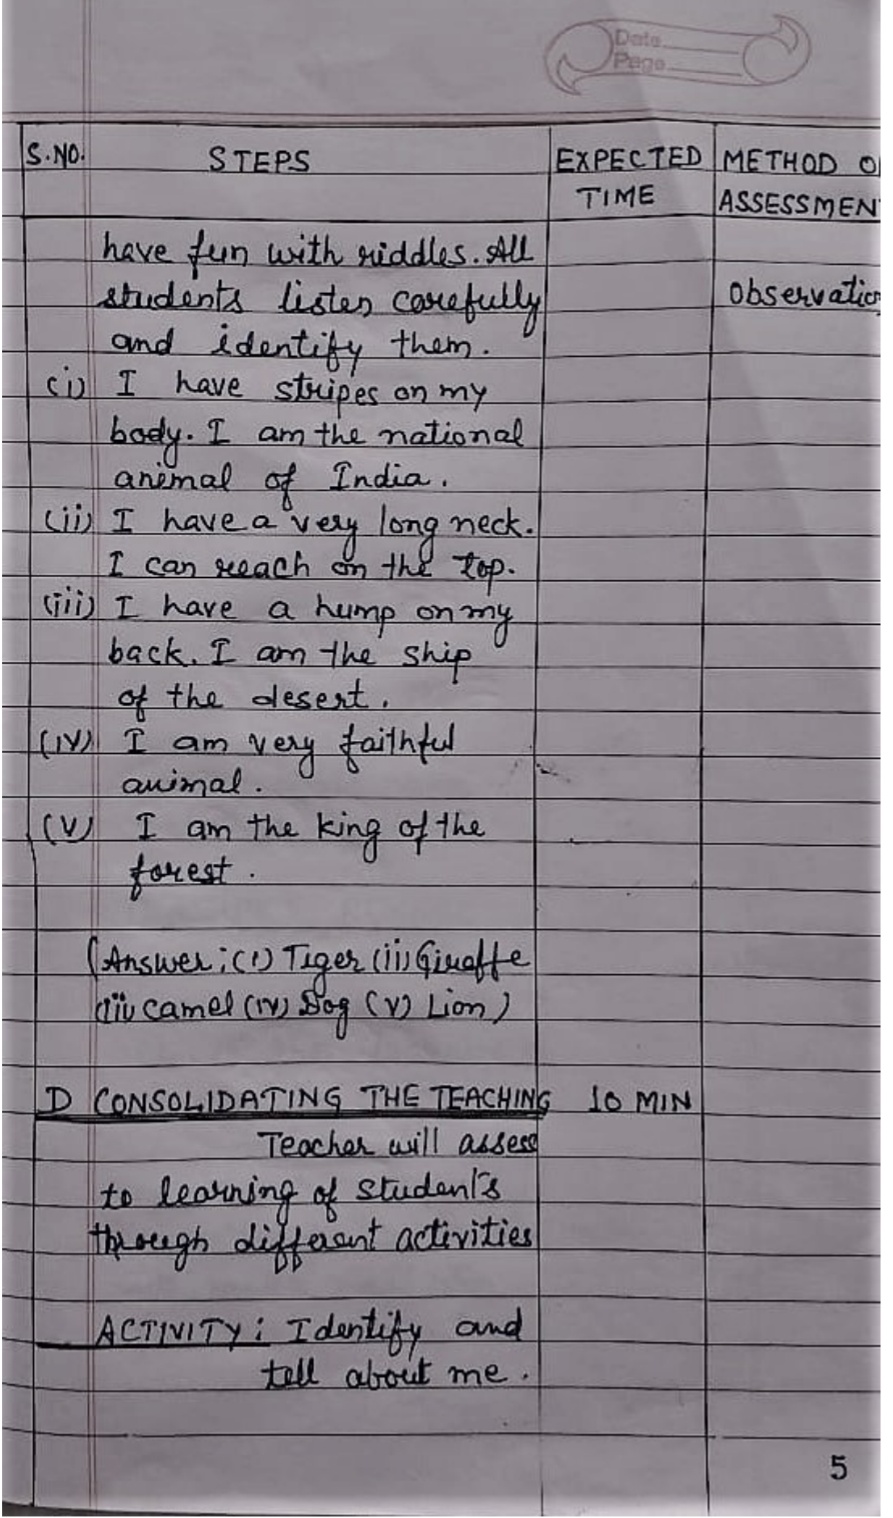 Date
Page
S.NO. STEPS EXPECTED TIME METHOD O ASSESSMEN
have fun with riddles. All
students listen carefully Observatio
and identify them.
(i) I have stripes on my
body. I am the national
animal of India.
(ii) I have a very long neck.
I can reach on the top.
(iii) I have a hump on my
back. I am the ship
of the desert.
(iv) I am very faithful
animal.
(v) I am the king of the
forest.
(Answer: (i) Tiger (ii) Giraffe
(iii camel (iv) Dog (v) Lion)
D CONSOLIDATING THE TEACHING 10 MIN
Teacher will assess
to learning of student's
through different activities
ACTIVITY: Identify and
tell about me.
5